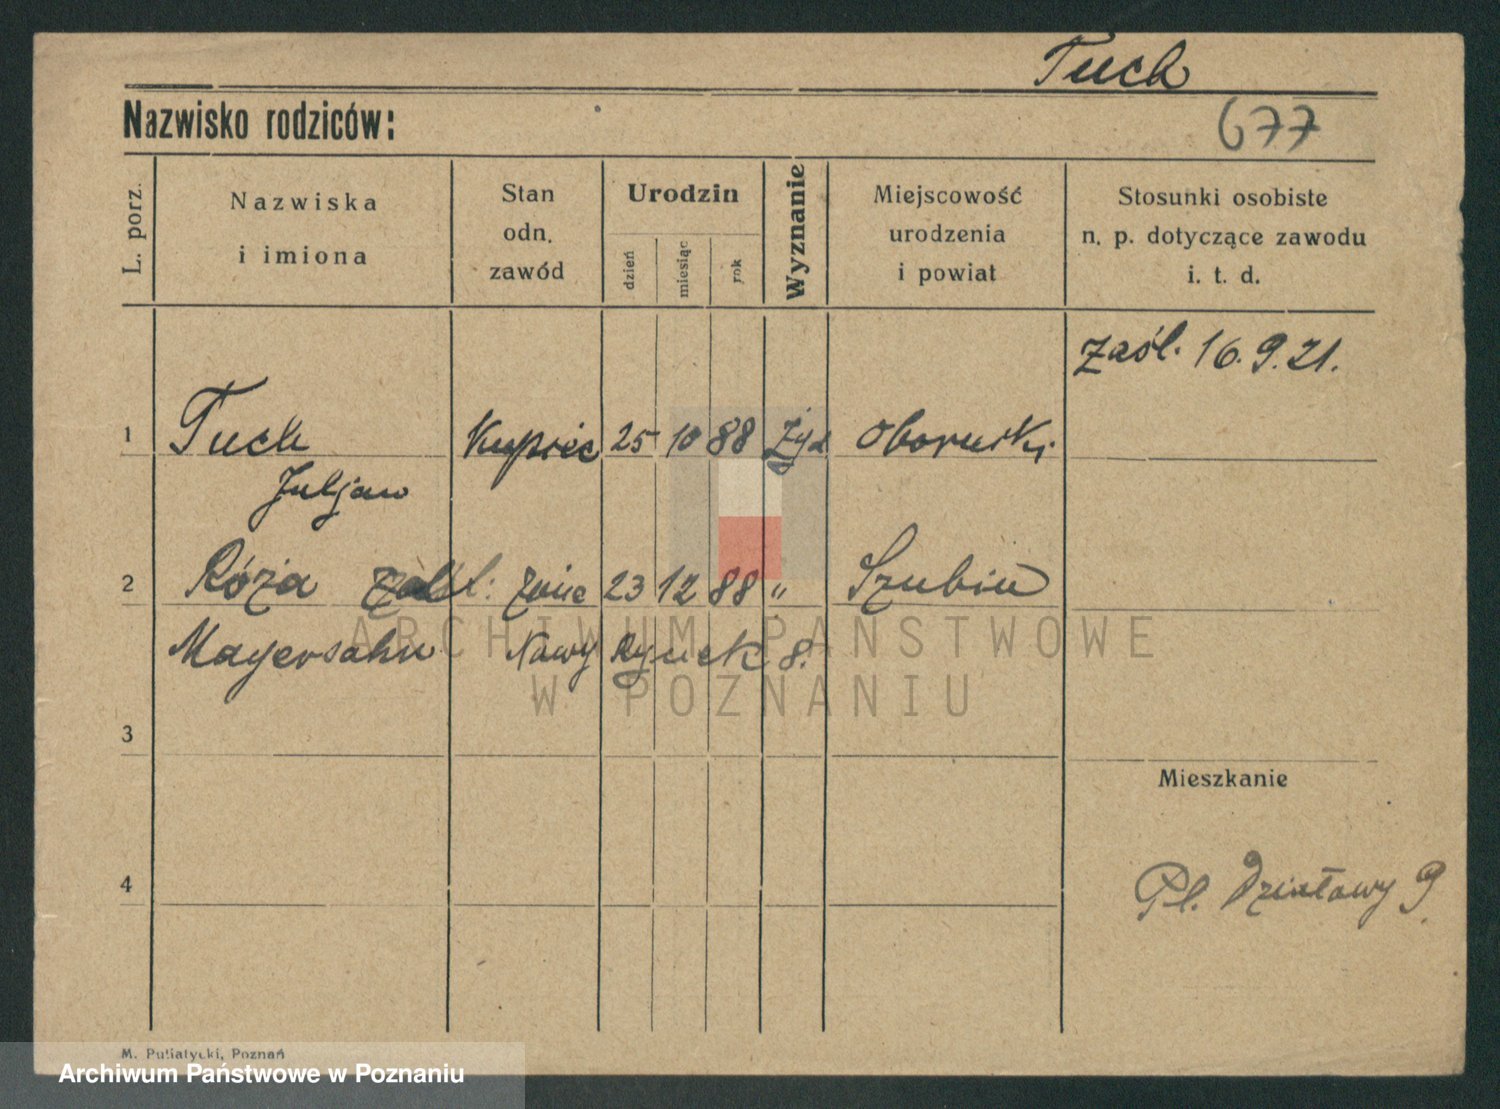 Tuch
Nazwisko rodziców:
677
L. porz.
Nazwiska
i imiona
Stan
odn.
zawód
Urodzin
dzień
miesiąc
rok
Wyznanie
Miejscowość
urodzenia
i powiat
Stosunki osobiste
n. p. dotyczące zawodu
i. t. d.
Zaśl. 16.9.21.
1 Tuch Kupiec 25 10 88 Żyd
Juljan
2 Róża 23 12 88 " Szubin
Mayersohn Nowy Rynek 8.
ARCHIWUM PAŃSTWOWE
W POZNANIU
3
Mieszkanie
4
Pl. Działowy 9
M. Putiatycki, Poznań
Archiwum Państwowe w Poznaniu